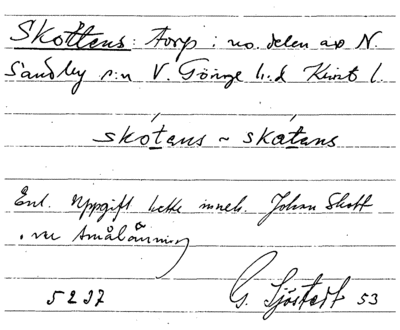 Skottens: torp i no. delen av N.
Sandby s:n V. Göinge h:d Krist l.
skótans ~ skatans
Enl. uppgift hette inneh. Johan Skott
5237 G. Sjöstedt 53